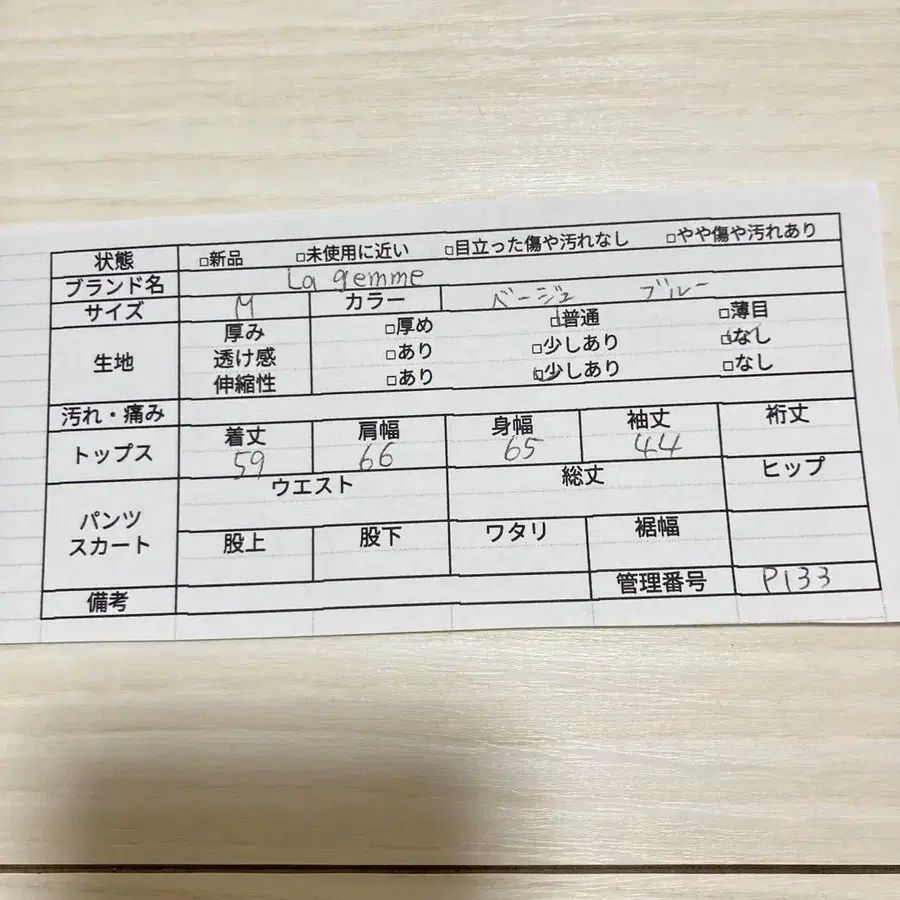 状態 □新品 □未使用に近い □目立った傷や汚れなし □やや傷や汚れあり
ブランド名 La gemme
サイズ M カラー ベージュ ブルー
生地 厚み □厚め □普通 □薄目
透け感 □あり □少しあり □なし
伸縮性 □あり □少しあり □なし
汚れ・痛み
トップス 着丈 肩幅 身幅 袖丈 裄丈
59 66 65 44
パンツ スカート ウエスト 総丈 ヒップ
股上 股下 ワタリ 裾幅
備考 管理番号 P133